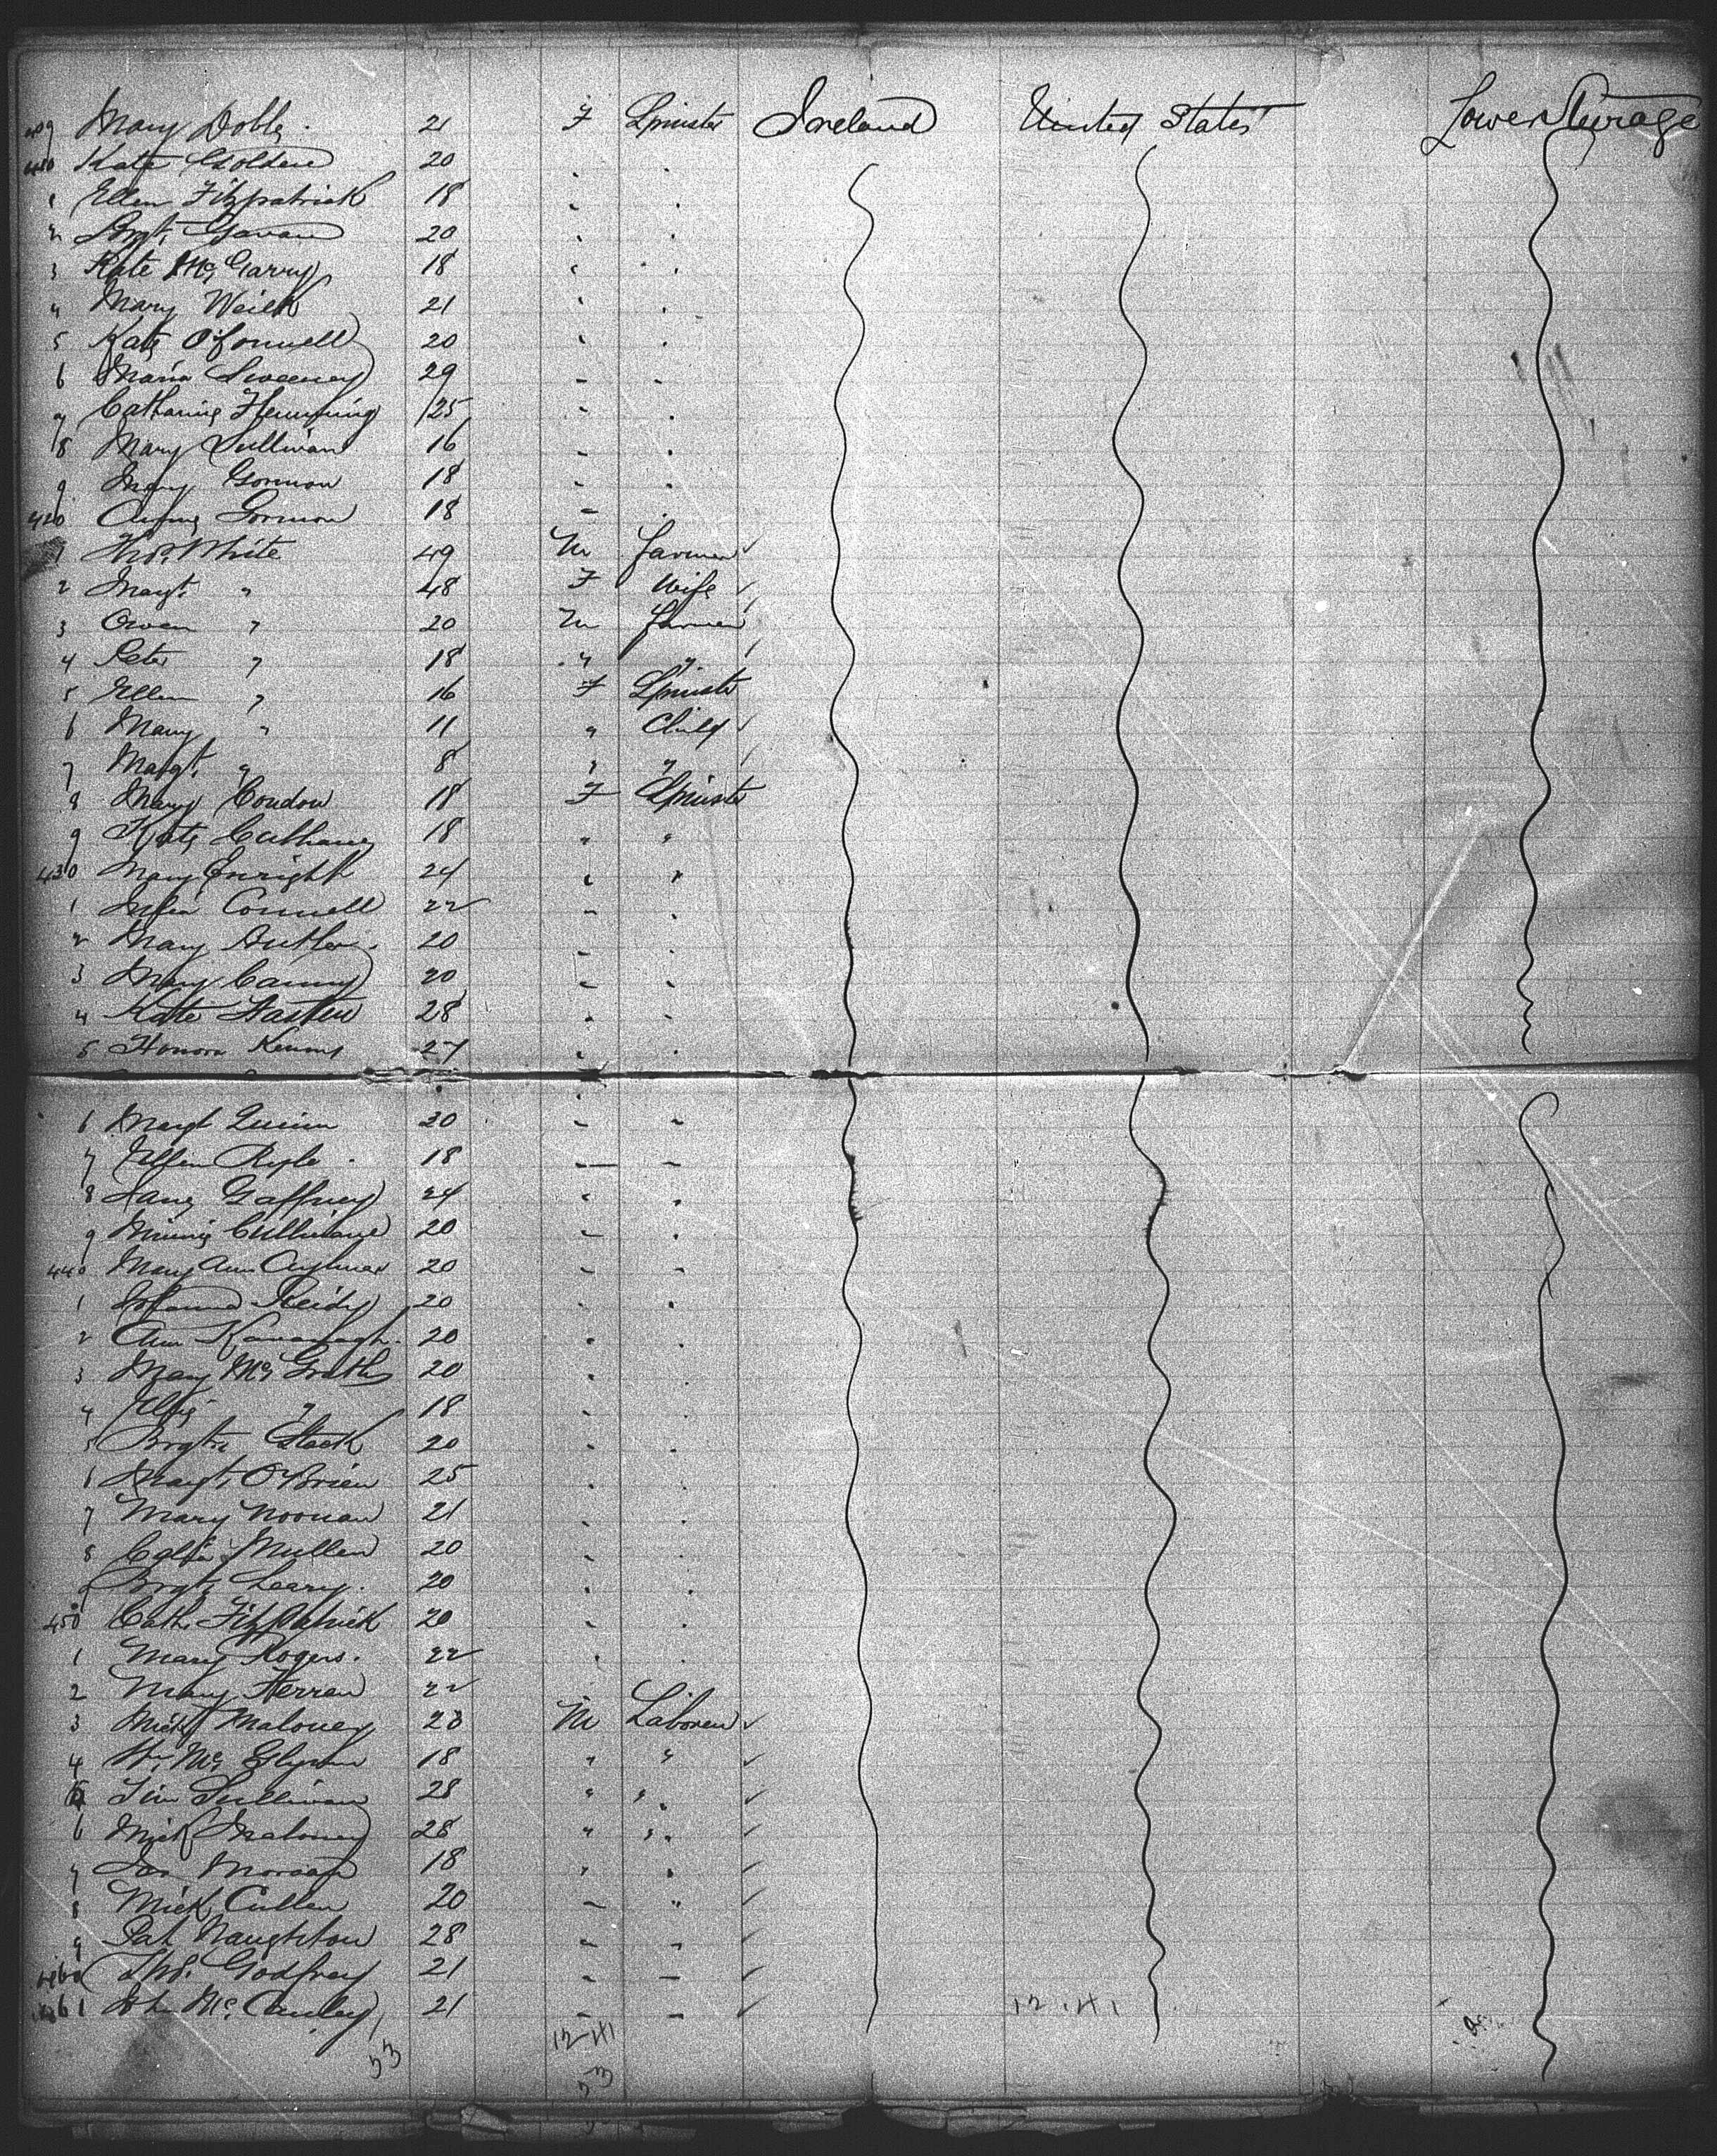 409 Mary Doble. 21 F Spinster Ireland United States Lower Steerage
410 Kate Golden 20 " "
1 Ellen Fitzpatrick 18 " "
2 Brgt. Gavan 20 " "
3 Kate McGarry 18 " "
4 Mary 21 " "
5 Kate O'Connell 20 " "
6 Maria Sweeney 29 " "
7 Catharine Flemming 25 " "
8 Mary Sullivan 16 " "
9 Mary Gorman 18 " "
420 Gorman 18 " "
1 Thos. White 49 M Farmer ✓
2 Margt. " 48 F Wife ✓
3 Owen " 20 M Farmer ✓
4 Peter " 18 " " ✓
5 Ellen " 16 F Spinster
6 Mary " 11 " Child ✓
7 Margt. " 8 " " ✓
8 Mary Condon 18 F Spinster
9 Kate Culhane 18 " "
430 Mary Enright 24 " "
1 Julia Connell 22 " "
2 Mary Butler. 20 " "
3 Mary Canny 20 " "
4 Kate 28 " "
5 Honora Kenny 27 " "
6 Margt Quinn 30 " "
7 Ellen Ryle. 18 " "
8 Jane Gaffney 24 " "
9 Minnie Cullinane 20 " "
440 Mary Ann Aylmer 20 " "
1 Johanna Reidy 20 " "
2 Ann Kavanagh. 20 " "
3 Mary McGrath 20 " "
4 " 18 " "
5 Brgt. Stack 20 " "
6 Margt. O'Brien 25 " "
7 Mary Noonan 21 " "
8 Celia Mullen 20 " "
9 Brgt. Leary. 20 " "
450 Cath. FitzPatrick 20 " "
1 Mary Rogers. 22 " "
2 Mary 22 "
3 Mick Maloney 28 M Laborer ✓
4 Wm. McGlynn 18 " " ✓
5 Tim Sullivan 28 " " ✓
6 Mick Maloney 28 " " ✓
7 Jas 18 " " ✓
8 Mick Cullen 20 " " ✓
9 Pat Naughton 28 " " ✓
460 Thos. Godfrey 21 " " ✓
461 John McCauley 21 " " ✓ 12.41
53 12-41
53